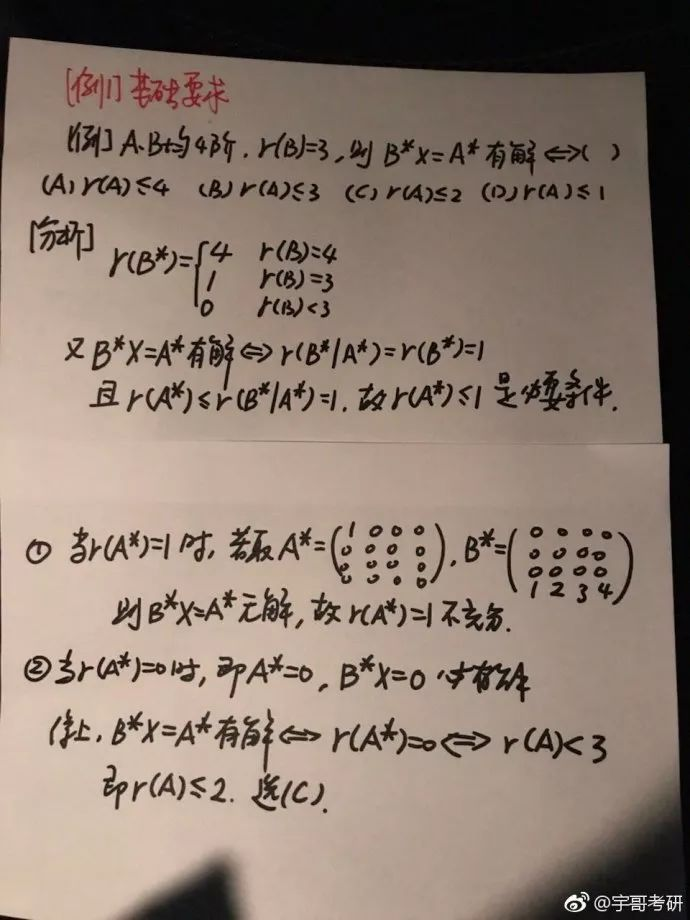 [例1] 基础要求
[例] A、B均4阶. r(B)=3, 则 B*X=A* 有解 ⟺ ( )
(A) r(A)≤4 (B) r(A)≤3 (C) r(A)≤2 (D) r(A)≤1
[分析]
r(B*)={4 r(B)=4
1 r(B)=3
0 r(B)<3
又 B*X=A* 有解 ⟺ r(B*|A*)=r(B*)=1
且 r(A*)≤r(B*|A*)=1. 故 r(A*)≤1 是必要条件.
① 当r(A*)=1时, 若取 A*=(1 0 0 0
0 0 0 0
0 0 0 0), B*=(0 0 0 0
0 0 0 0
0 0 0 0
1 2 3 4)
则 B*X=A* 无解, 故 r(A*)=1 不充分.
② 当r(A*)=0时, 即A*=0, B*X=0 必有解
综上, B*X=A* 有解 ⟺ r(A*)=0 ⟺ r(A)<3
即 r(A)≤2. 选(C).
@宇哥考研